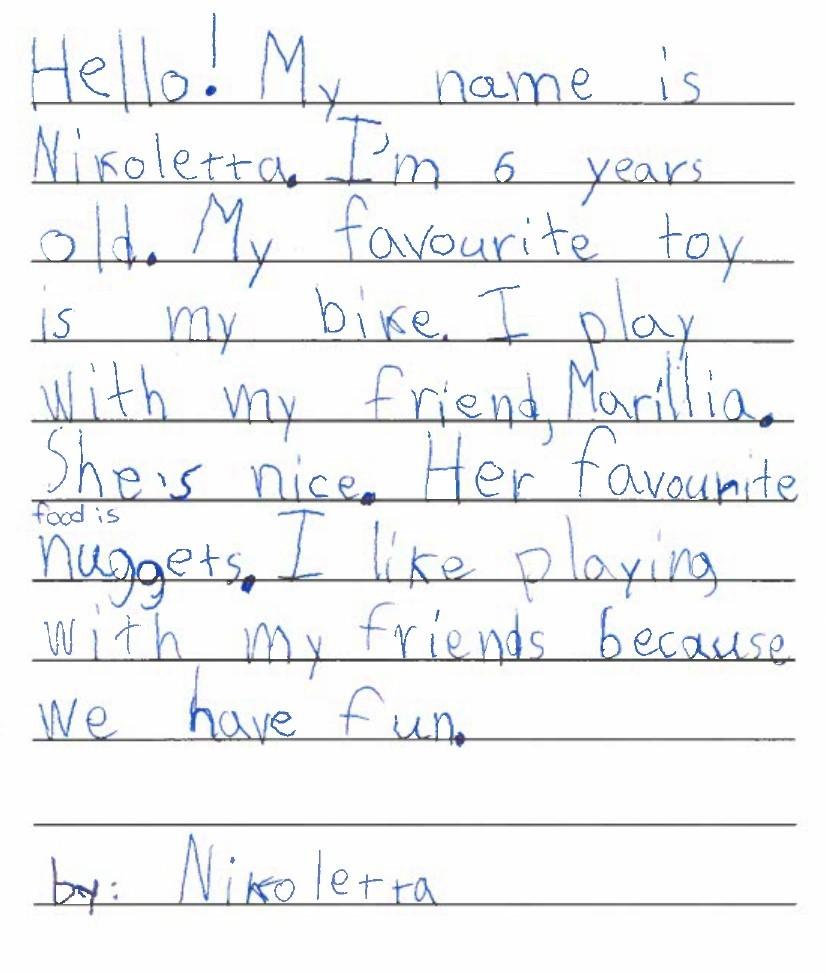 Hello! My name is
Nikoletta. I'm 6 years
old. My favourite toy
is my bike. I play
with my friend, Marillia.
She's nice. Her favourite
food is
nuggets. I like playing
with my friends because
we have fun.
by: Nikoletta